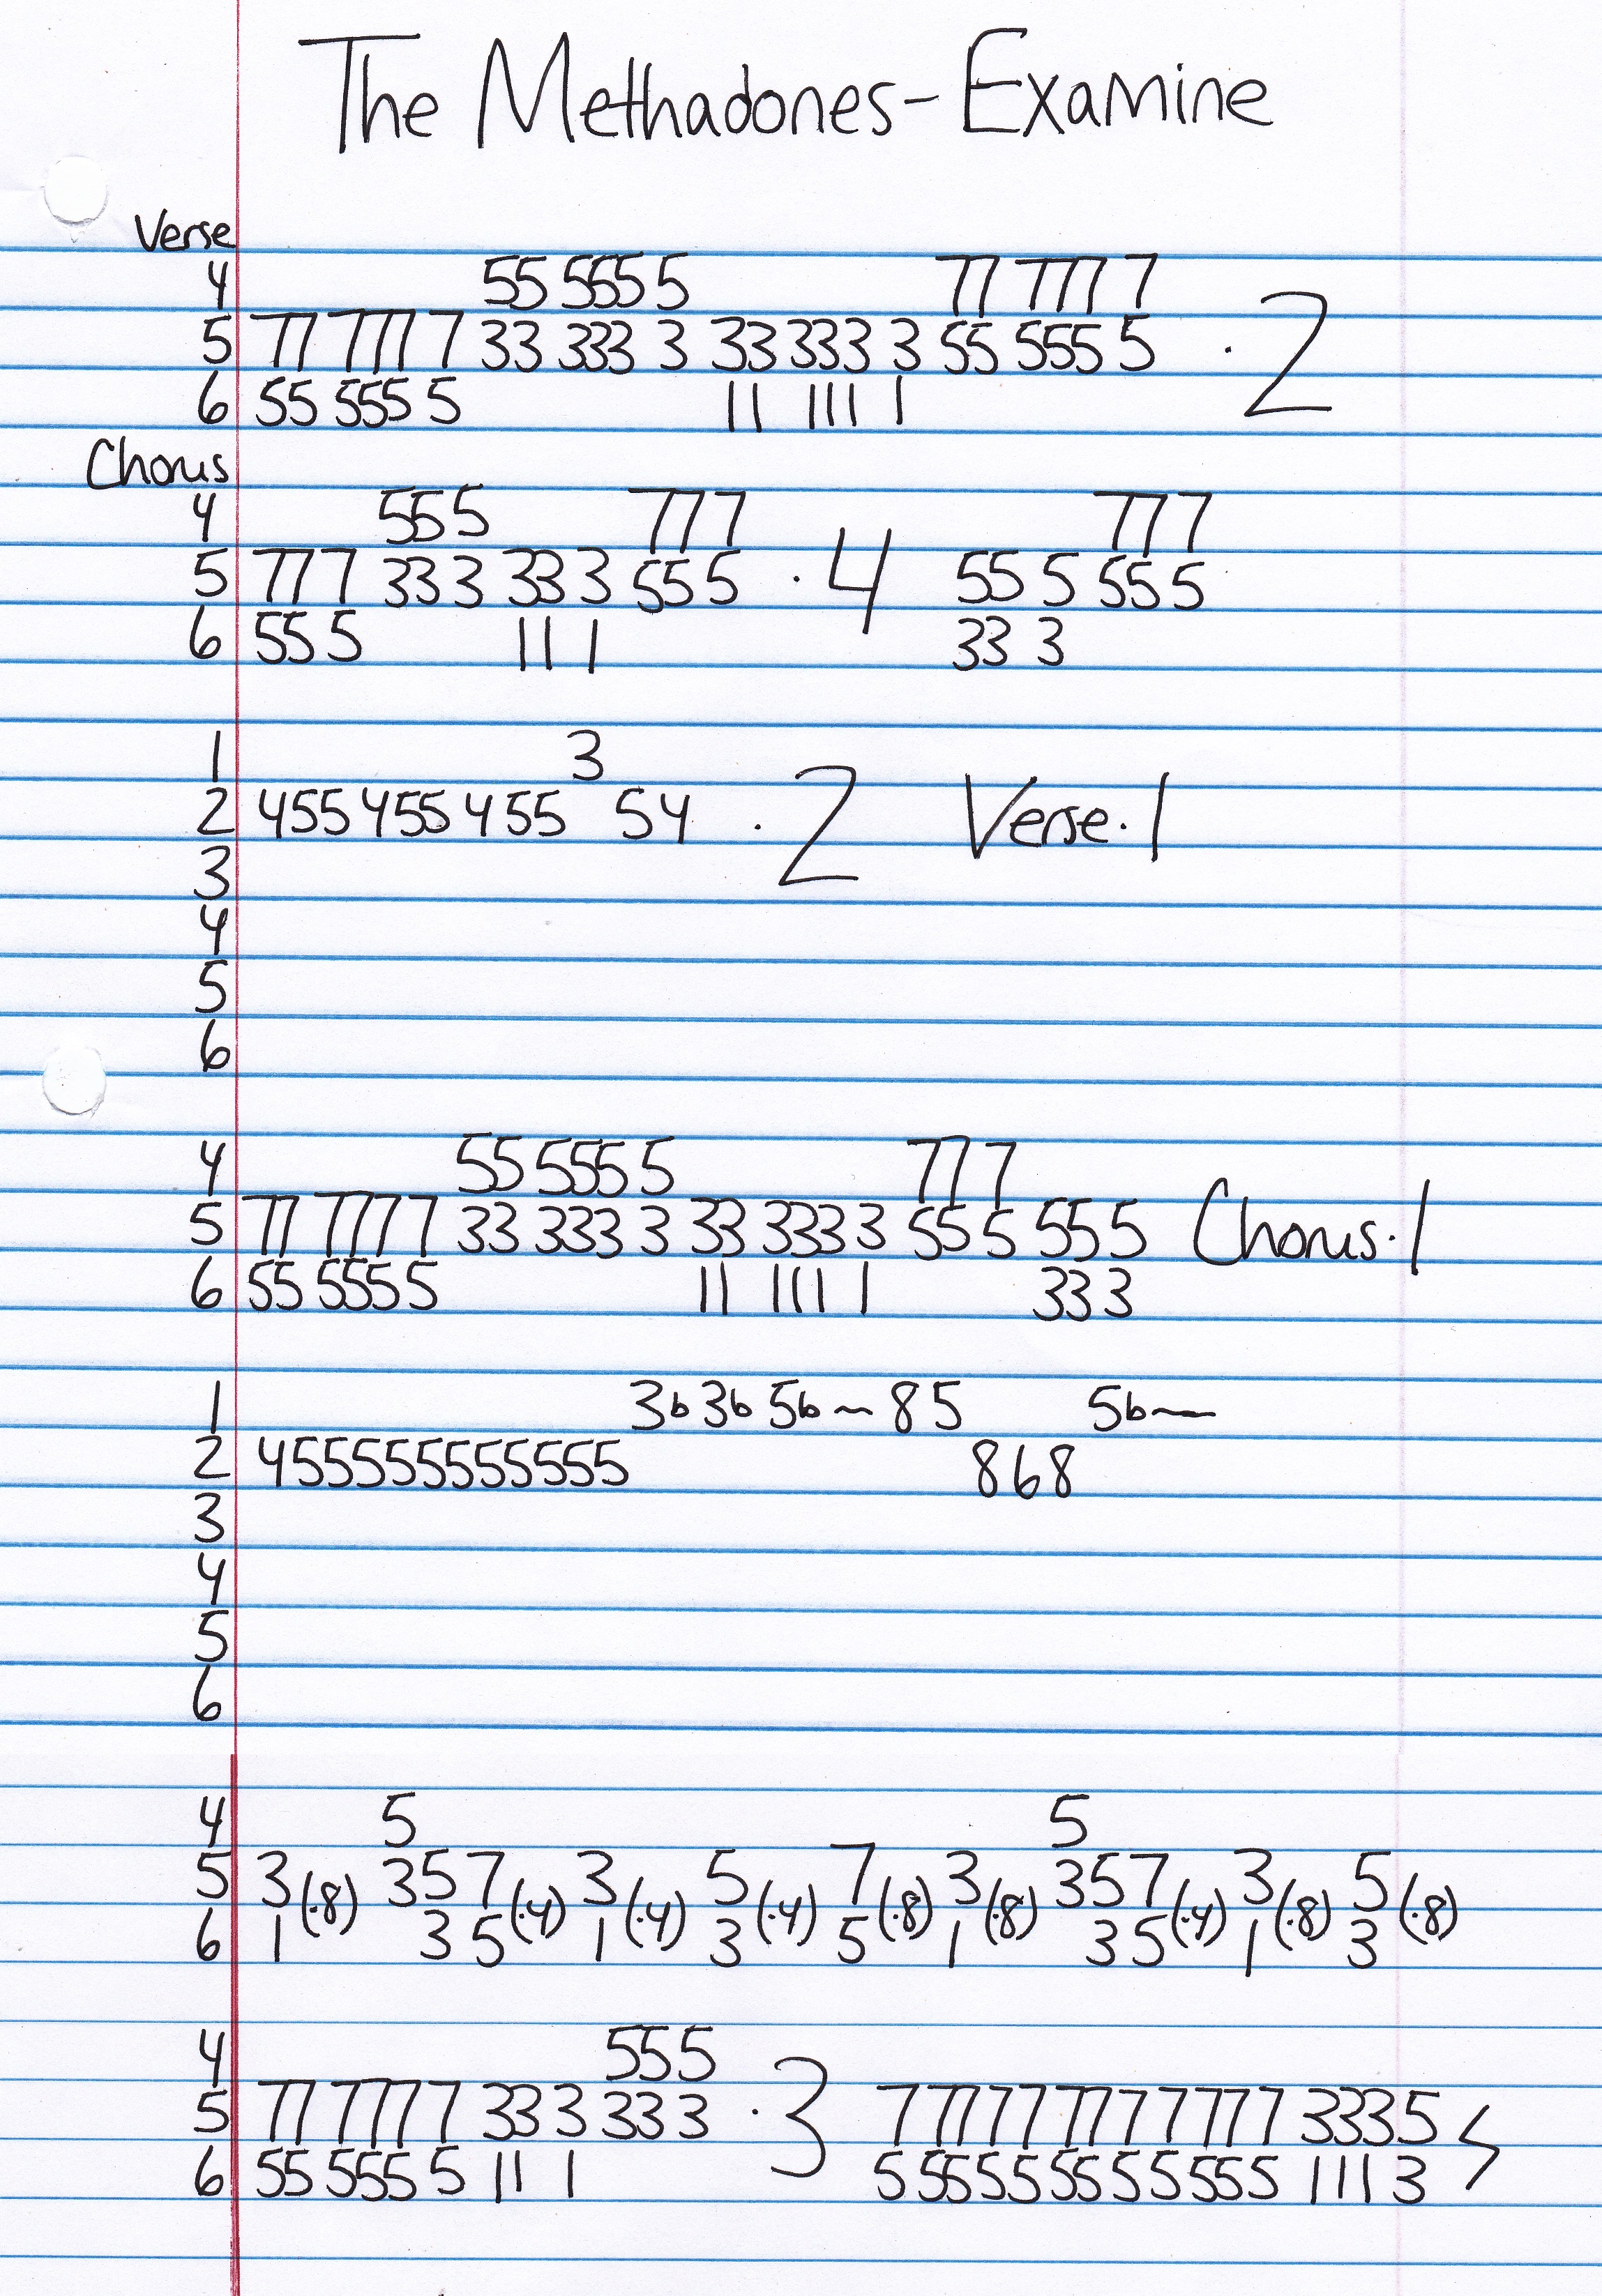 The Methadones - Examine
Verse
4 55 555 5 77 777 7
5 77 777 7 33 333 3 33 333 3 55 555 5 · 2
6 55 555 5 11 111 1
Chorus
4 55 5 77 7 77 7
5 77 7 33 3 33 3 55 5 · 4 55 5 55 5
6 55 5 11 1 33 3
1 3
2 455 455 455 54 · 2 Verse · 1
3
4
5
6
4 55 555 5 77 7
5 77 777 7 33 333 3 33 333 3 55 5 55 5 Chorus · 1
6 55 555 5 11 111 1 33 3
1 3b 3b 5b~ 8 5 5b~
2 455555555555 868
3
4
5
6
4 5 5
5 3 (·8) 3 5 7 (·4) 3 (·4) 5 (·4) 7 (·8) 3 (·8) 3 5 7 (·4) 3 (·8) 5 (·8)
6 1 3 5 1 3 5 1 3 5 1 3
4 55 5
5 77 777 7 33 3 33 3 · 3 7 777 77 7 7 777 3335
6 55 555 5 11 1 5 5555 55 5 5 555 1113